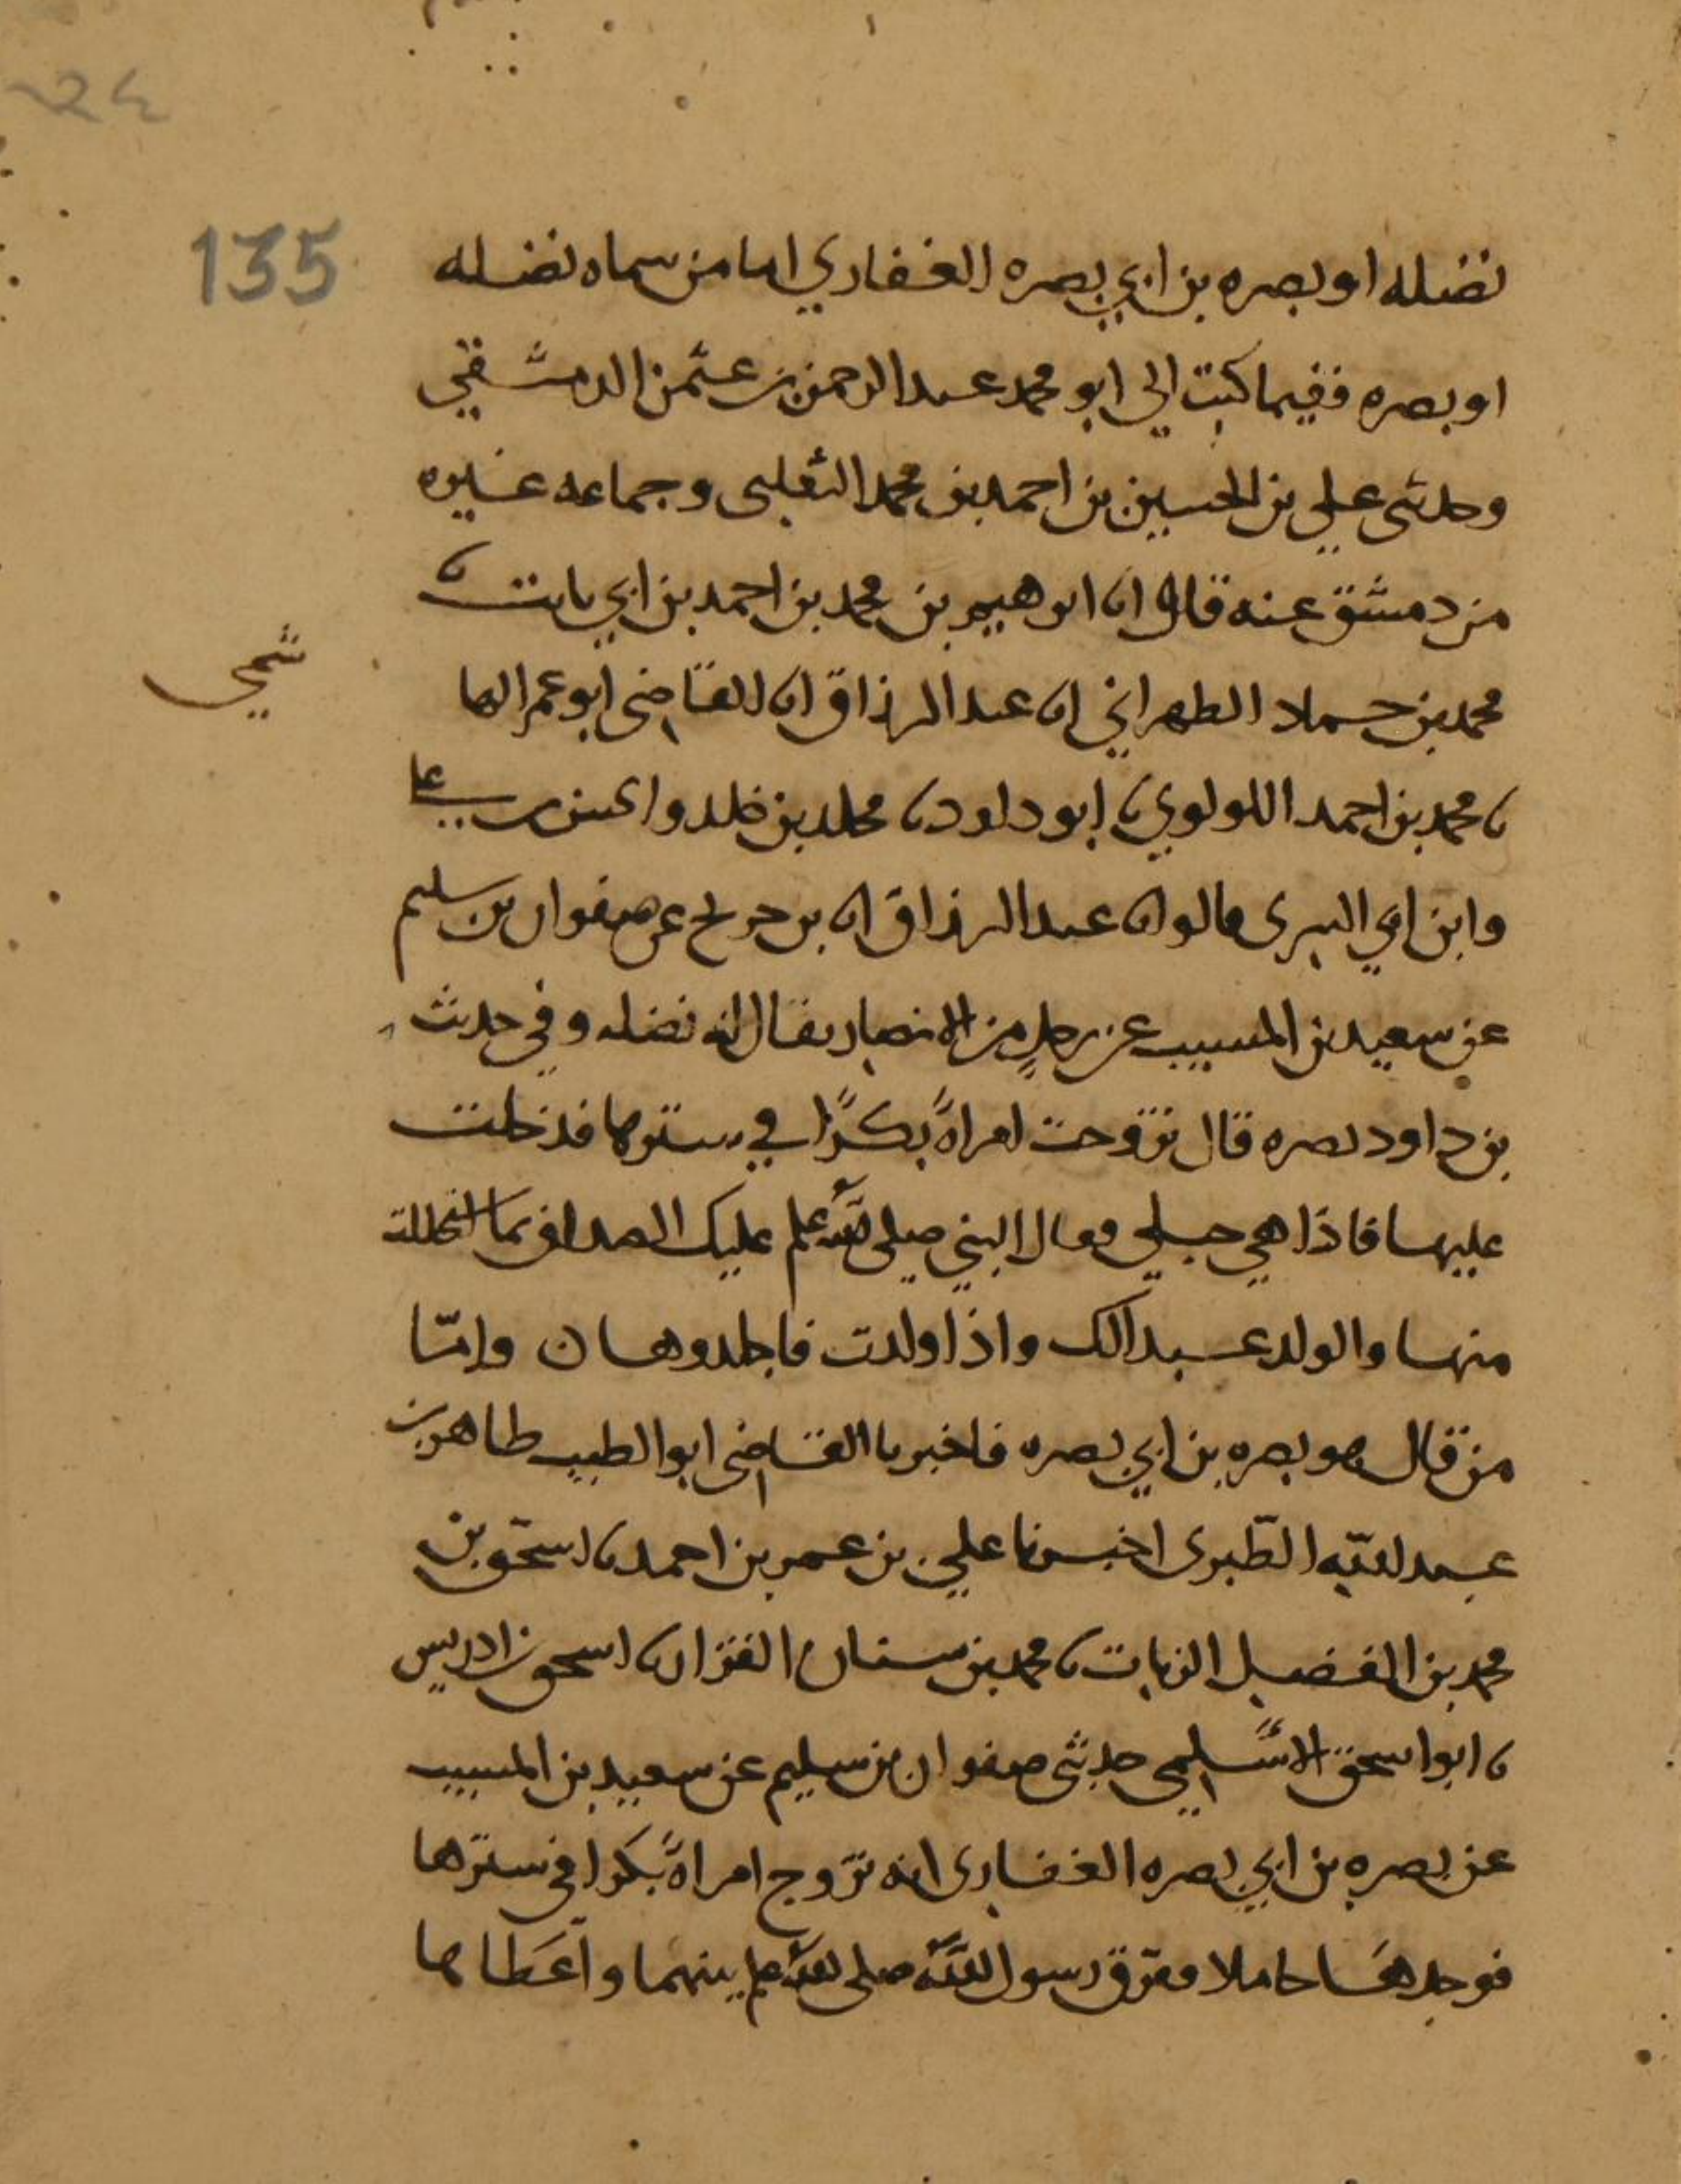 ٢٤
135
نضله او بصره بن ابي بصره الغفاري اما من سماه نضله
او بصره ففيما كتب الي ابو محمد عبد الرحمن بن عثمن الدمشقي
وحدثني علي بن الحسين بن احمد بن محمد الثعلبي وجماعه غيره
من دمشق عنه قال انا ابرهيم بن محمد بن احمد بن ابي ثابت نا
محمد بن حماد الطهراني انا عبد الرزاق انا القاضي ابو عمر الها
شمي
نا محمد بن احمد اللولوي نا ابو داود نا مخلد بن خلد والحسن بن علي
وابن ابي السري قالوا نا عبد الرزاق انا بن جريج عن صفوان بن سليم
عن سعيد بن المسيب عن رجلٍ من الانصار يقال له نضله وفي حديث
بن داود بصره قال تزوجت امراةً بكرًا في سترها فدخلت
عليها فاذا هي حبلي فقال النبي صلى الله علم عليك الصداق بما استحللت
منها والولد عبد لك واذا ولدت فاجلدوها ن وامّا
من قال هو بصره بن ابي بصره فاخبرنا القاضي ابو الطيب طاهر بن
عبد الله الطّبري اخبرنا علي بن عمر بن احمد نا اسحق بن
محمد بن الفضل الزيات نا محمد بن سنان القزاز نا اسحق بن ادريس
نا ابو اسحق الاسلمي حدثني صفوان بن سليم عن سعيد بن المسيب
عن بصره بن ابي بصره الغفاري انه تزوج امراةً بكرا في سترها
فوجدها حاملا ففرّق رسول الله صلى الله علم بينهما واعطاها